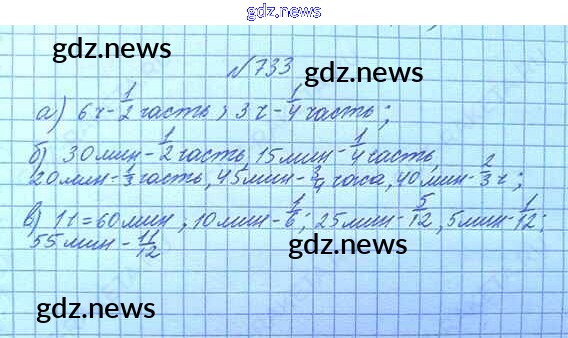 gdz.news
gdz.news
№733
gdz.news
а) 6 ч - 1/2 часть; 3 ч - 1/4 часть;
б) 30 мин - 1/2 часть, 15 мин - 1/4 часть,
20 мин - 1/3 часть, 45 мин - 3/4 часа, 40 мин - 2/3 ч;
в) 1 ч = 60 мин, 10 мин - 1/6; 25 мин - 5/12, 5 мин - 1/12;
55 мин - 11/12
gdz.news
gdz.news